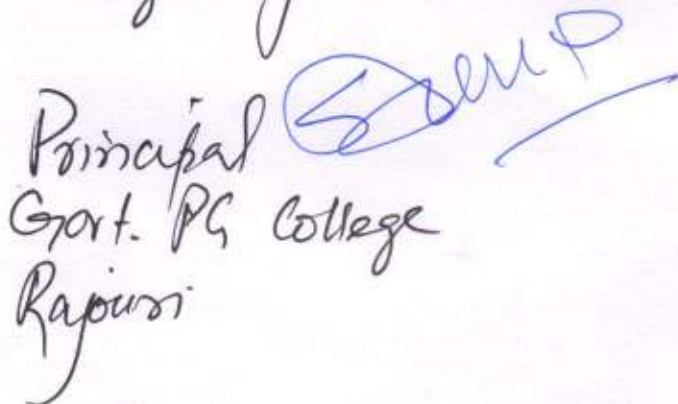 Principal
Govt. PG College
Rajouri